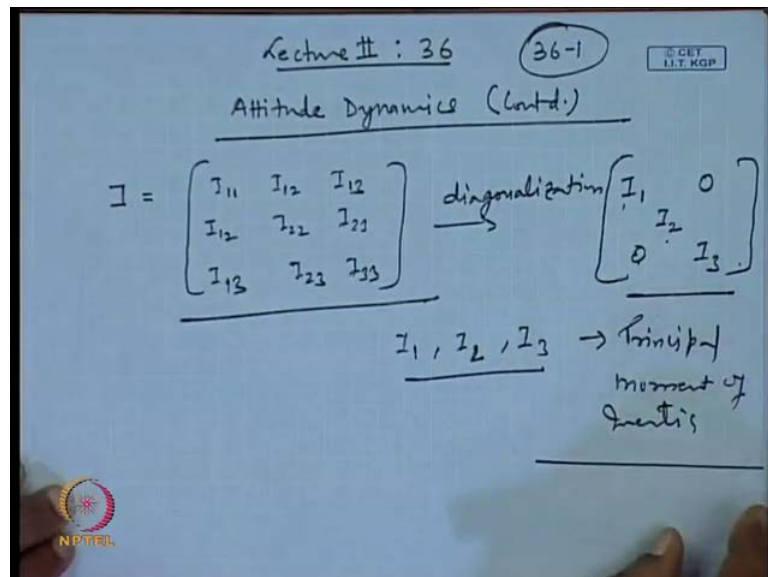 Lecture II : 36 36-1
© CET
I.I.T. KGP
Attitude Dynamics (Contd.)
I = [ I11 I12 I13 ; I12 I22 I23 ; I13 I23 I33 ] diagonalization → [ I1 0 ; I2 ; 0 I3 ]
I1 , I2 , I3 → Principal
moment of
Inertia
NPTEL